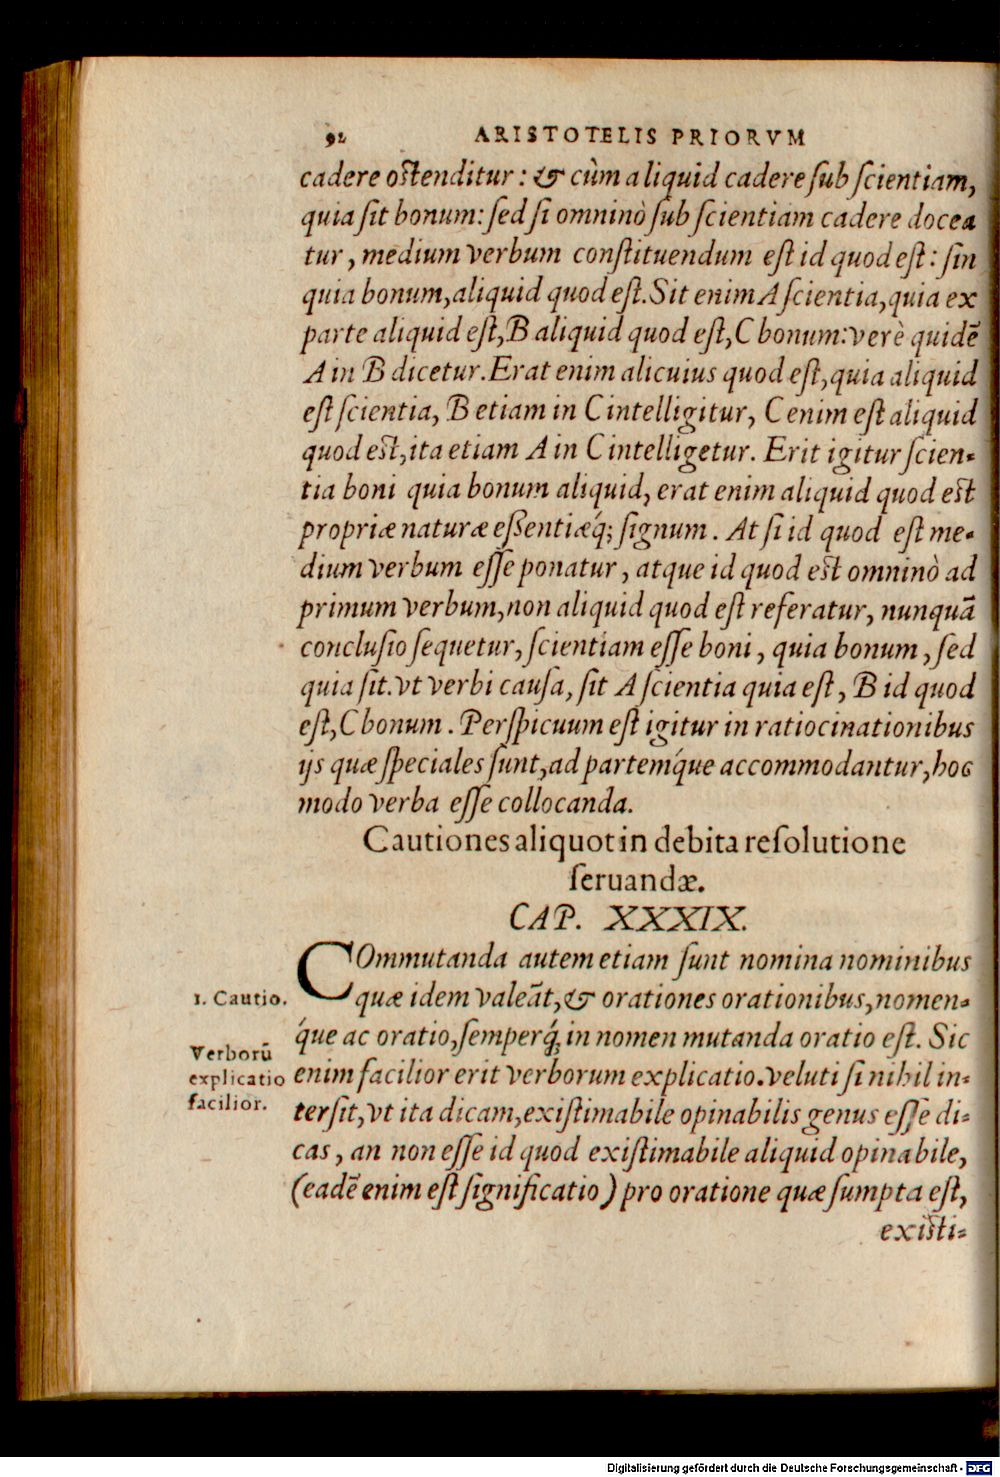 92 ARISTOTELIS PRIORVM
cadere ostenditur: & cùm aliquid cadere sub scientiam,
quia sit bonum: sed si omninò sub scientiam cadere docea
tur, medium verbum constituendum est id quod est: sin
quia bonum, aliquid quod est. Sit enim A scientia, quia ex
parte aliquid est, B aliquid quod est, C bonum: verè quidẽ
A in B dicetur. Erat enim alicuius quod est, quia aliquid
est scientia, B etiam in C intelligitur, C enim est aliquid
quod est, ita etiam A in C intelligetur. Erit igitur scien-
tia boni quia bonum aliquid, erat enim aliquid quod est
propriæ naturæ essentiæq́; signum. At si id quod est me-
dium verbum esse ponatur, atque id quod est omninò ad
primum verbum, non aliquid quod est referatur, nunquã
conclusio sequetur, scientiam esse boni, quia bonum, sed
quia sit. vt verbi causa, sit A scientia quia est, B id quod
est, C bonum. Perspicuum est igitur in ratiocinationibus
ijs quæ speciales sunt, ad partemq́ue accommodantur, hoc
modo verba esse collocanda.
Cautiones aliquot in debita resolutione
seruandæ.
CAP. XXXIX.
COmmutanda autem etiam sunt nomina nominibus
1. Cautio.
quæ idem valeãt, & orationes orationibus, nomen-
q́ue ac oratio, semperq́; in nomen mutanda oratio est. Sic
Verborũ
explicatio
facilior.
enim facilior erit verborum explicatio. veluti si nihil in-
tersit, vt ita dicam, existimabile opinabilis genus esse di-
cas, an non esse id quod existimabile aliquid opinabile,
(eadẽ enim est significatio) pro oratione quæ sumpta est,
existi-
Digitalisierung gefördert durch die Deutsche Forschungsgemeinschaft - DFG